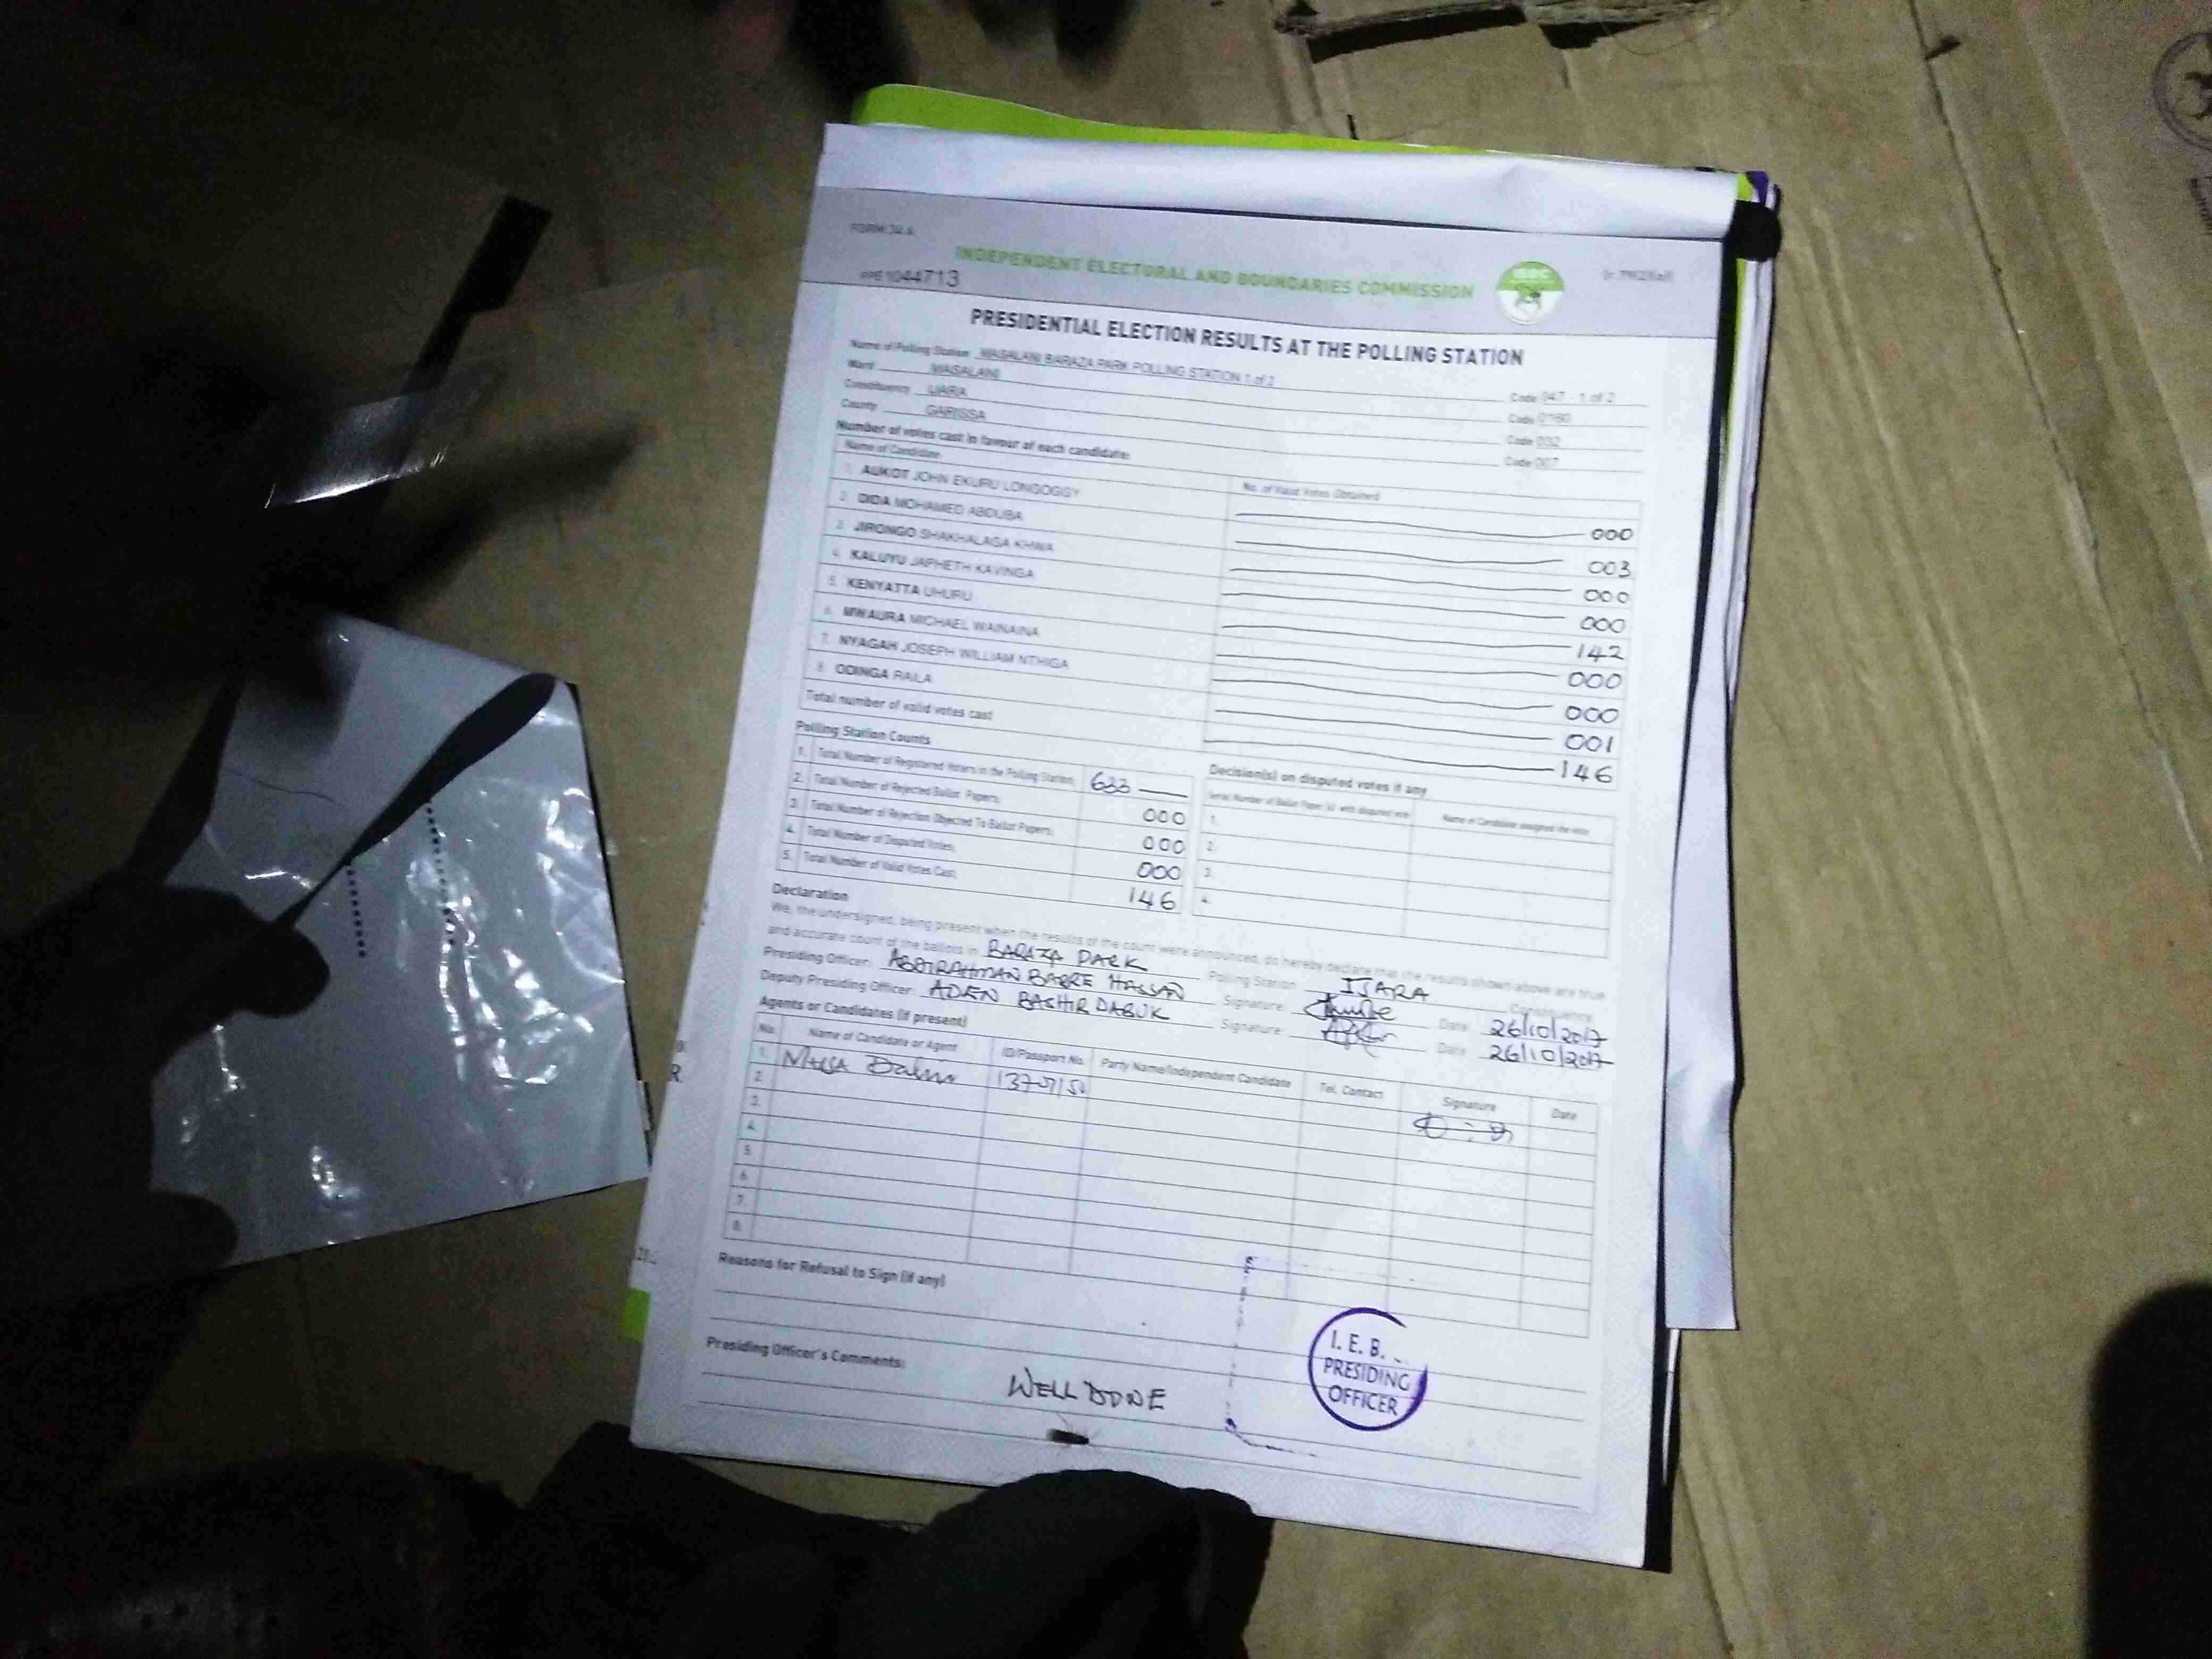 FORM 34 A
INDEPENDENT ELECTORAL AND BOUNDARIES COMMISSION
IEBC
PRE1044713
PRESIDENTIAL ELECTION RESULTS AT THE POLLING STATION
Name of Polling Station MASALANI BARAZA PARK POLLING STATION 1 of 2 Code 047 - 1 of 2
Ward MASALANI Code 0160
Constituency IJARA Code 032
County GARISSA Code 007
Number of votes cast in favour of each candidate:
Name of Candidate No. of Valid Votes Obtained
1. AUKOT JOHN EKURU LONGOGGY 000
2. DIDA MOHAMED ABDUBA 003
3. JIRONGO SHAKHALAGA KHWA 000
4. KALUYU JAPHETH KAVINGA 000
5. KENYATTA UHURU 142
6. MWAURA MICHAEL WAINAINA 000
7. NYAGAH JOSEPH WILLIAM NTHIGA 000
8. ODINGA RAILA 001
Total number of valid votes cast 146
Polling Station Counts
1. Total Number of Registered Voters in the Polling Station; 633
2. Total Number of Rejected Ballot Papers; 000
3. Total Number of Rejection Objected To Ballot Papers; 000
4. Total Number of Disputed Votes; 000
5. Total Number of Valid Votes Cast; 146
Decision(s) on disputed votes if any
Serial Number of Ballot Paper (s) with disputed vote Name of Candidate assigned the vote
1.
2.
3.
4.
Declaration
We, the undersigned, being present when the results of the count were announced, do hereby declare that the results shown above are true
and accurate count of the ballots in BARAZA PARK Polling Station IJARA Constituency
Presiding Officer: ABDIRAHMAN BARRE HASSAN Signature: Date: 26/10/2017
Deputy Presiding Officer: ADEN BASHIR DABUK Signature: Date: 26/10/2017
Agents or Candidates (if present)
No. Name of Candidate or Agent ID/Passport No. Party Name/Independent Candidate Tel. Contact Signature Date
1.
2.
3.
4.
5.
6.
7.
8.
Reasons for Refusal to Sign (if any)
Presiding Officer's Comments:
WELL DONE
I. E. B.
PRESIDING
OFFICER